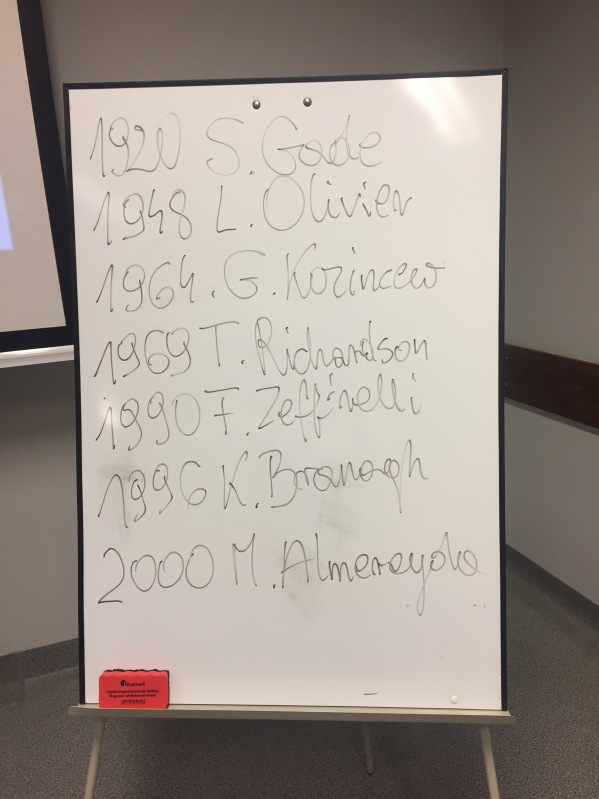 1920 S. Gade
1948 L. Olivier
1964. G. Kozincew
1969 T. Richardson
1990 F. Zeffirelli
1996 K. Branagh
2000 M. Almereyda